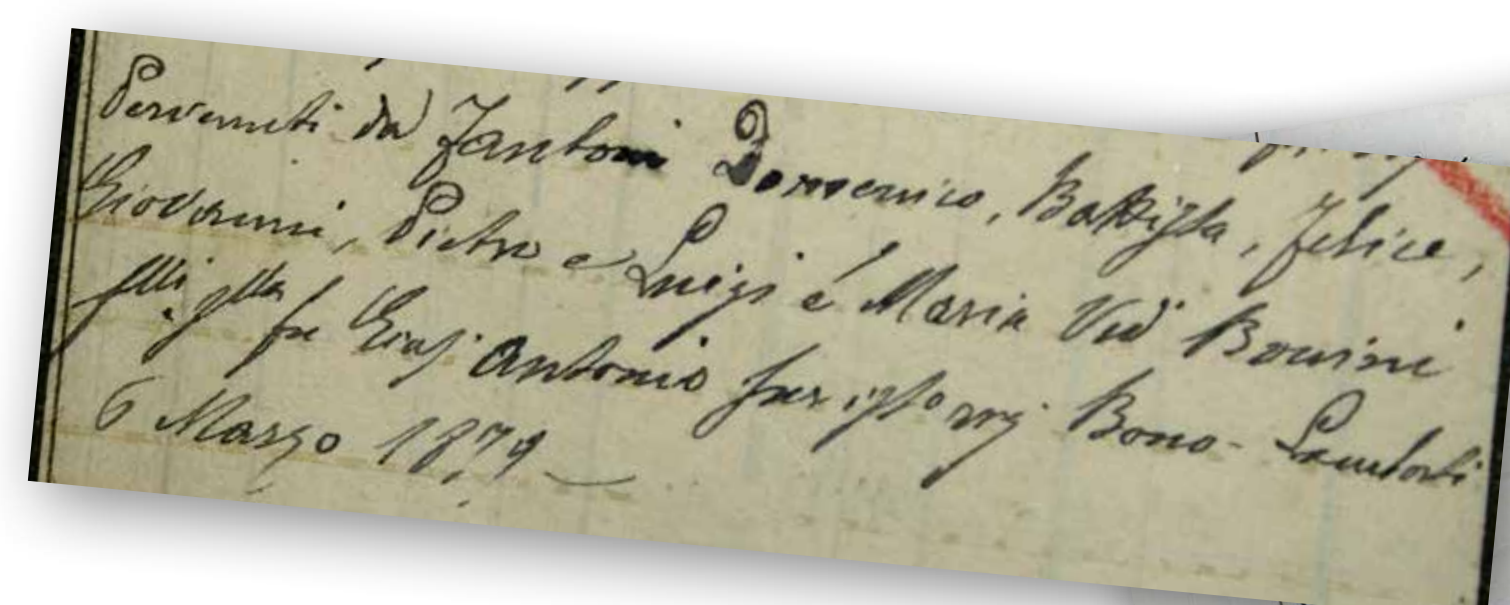 Pervenuti da Fantoni Domenico, Battista, Felice,
Giovanni, Pietro e Luigi é Maria Vid Bonini
flli flla fu Gius Antonio per isto Bono-
6 Marzo 1879